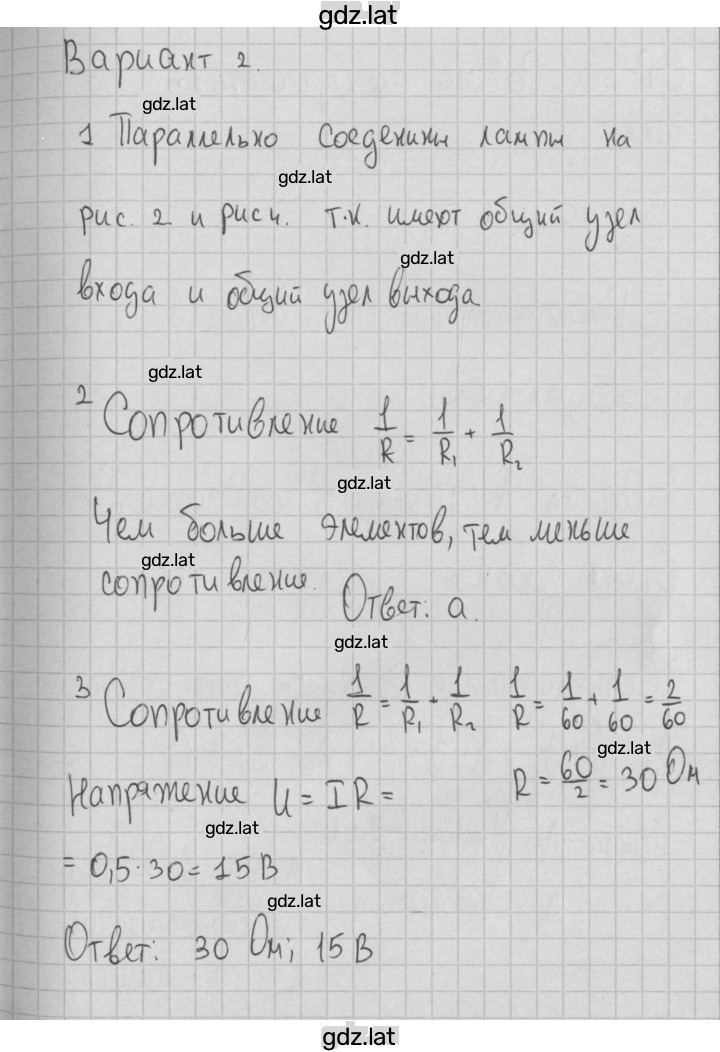 gdz.lat
Вариант 2.
gdz.lat
1 Параллельно соеденины лампы на
gdz.lat
рис. 2. и рис 4. т.к. имеют общий узел
gdz.lat
входа и общий узел выхода
gdz.lat
2 Сопротивление 1/R = 1/R₁ + 1/R₂
gdz.lat
Чем больше элементов, тем меньше
gdz.lat
сопротивление. Ответ: а.
gdz.lat
3 Сопротивление 1/R = 1/R₁ + 1/R₂ 1/R = 1/60 + 1/60 = 2/60
gdz.lat
Напряжение U = IR = R = 60/2 = 30 Ом
gdz.lat
= 0,5·30 = 15 В
gdz.lat
Ответ: 30 Ом; 15 В
gdz.lat